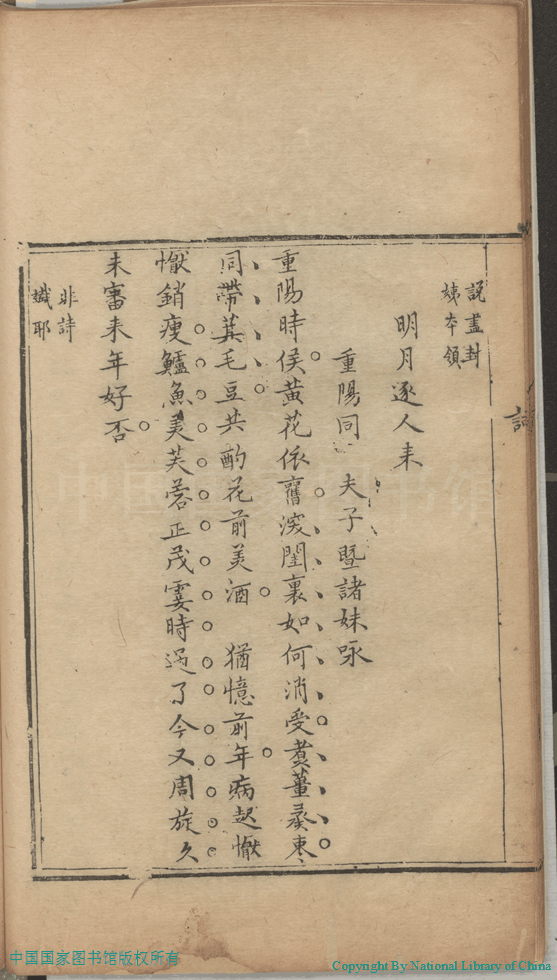 詞
説盡封
姨本領
明月逐人来
重陽同 夫子暨諸妹咏
重陽時侯黄花依舊深閨裏如何消受煮薑棗
同帶萁毛豆共酌花前美酒 猶憶前年病起懨
懨銷瘦鱸魚美芙蓉正茂霎時過了今又周旋久
未審来年好否
非詩
讖耶
中国国家图书馆版权所有
Copyright By National Library of China